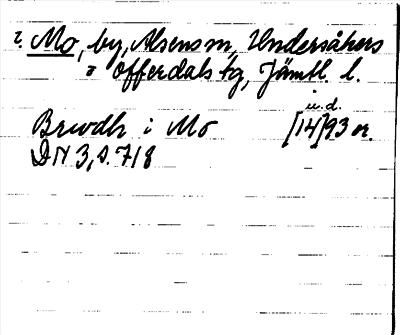 2. Mo, by, Alsens sn, Undersåkers
o Offerdals tg, Jämtl. l.
u.d.
Brwdh i Mo [14]93 or.
DN 3, s. 718